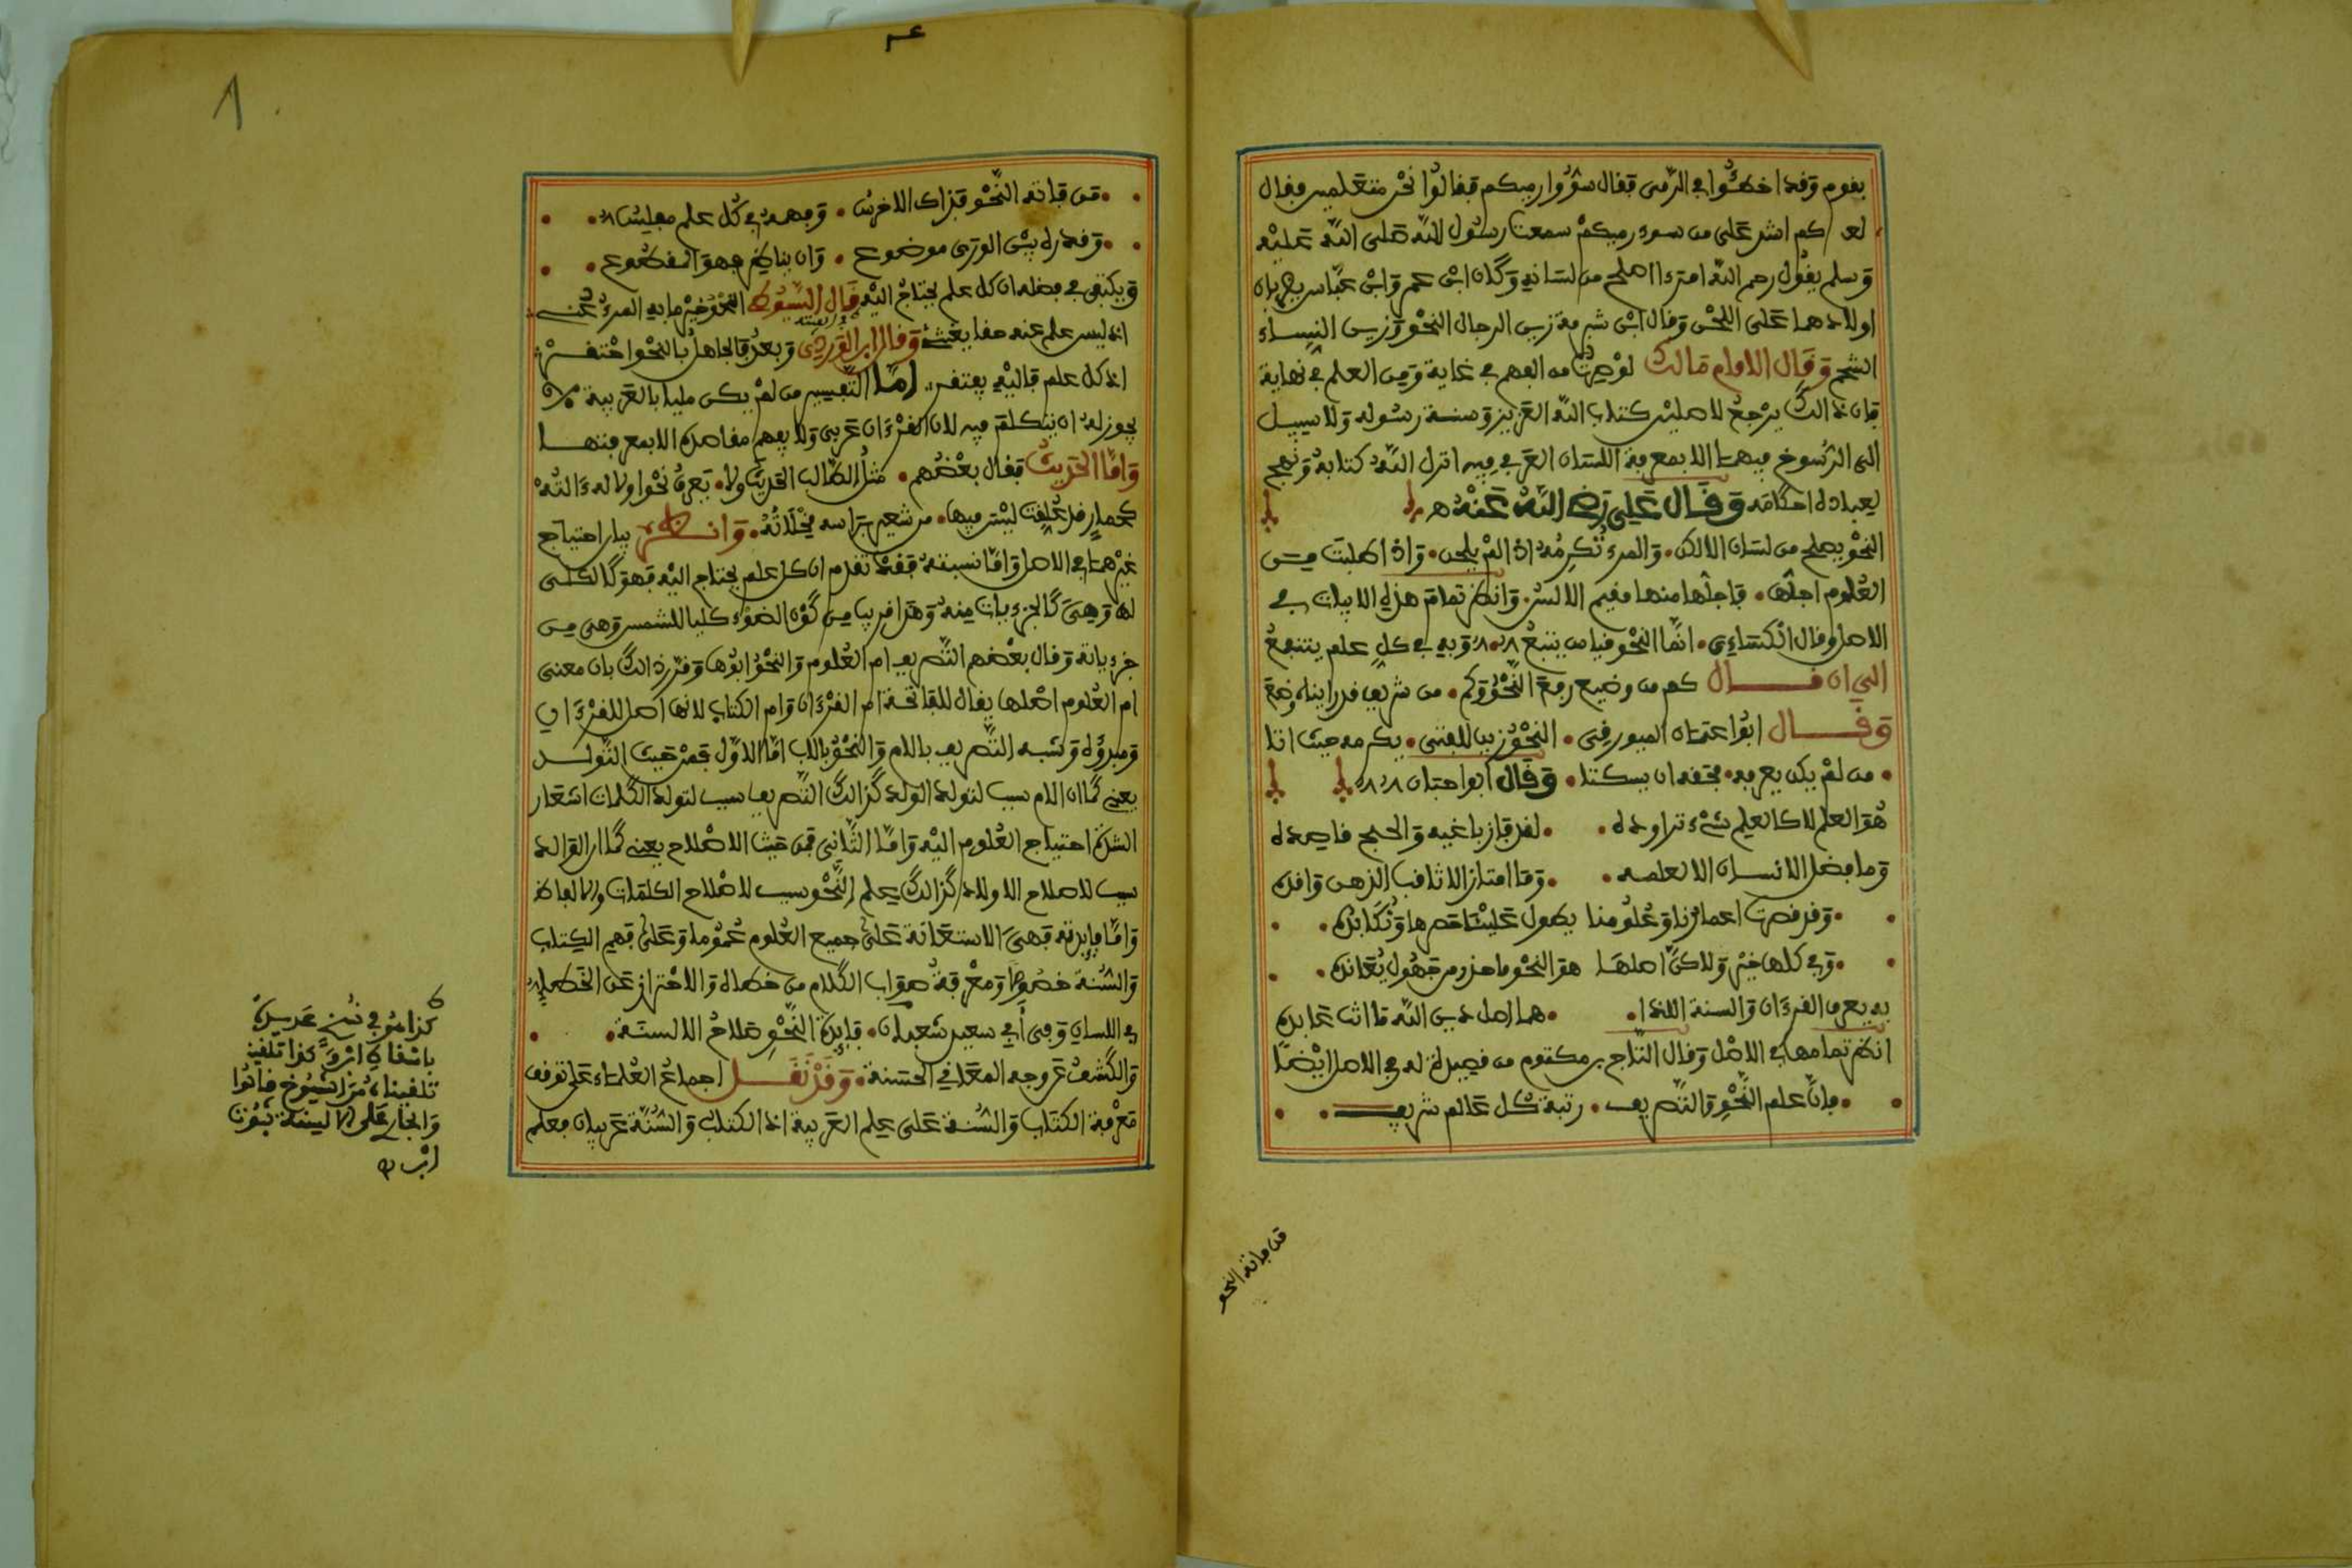 بقوم وقد اخطئوا في الرمى فقال سوءوا رميكم فقالوا نحن متعلمين فقال
كم اشد على من سوء رميكم سمعت رسول الله صلى الله عليه
وسلم يقول رحم الله امرءا اصلح من لسانه وكان ابن عمر وابن عباس يضربان
اولادهما على اللحن وقال ابن شبرمة زين الرجال النحو وزين النساء
الشحم وقال الامام مالك لو صرت من الفهم في غاية ومن العلم في نهاية
فان ذالك يرجع لاصلين كتاب الله العزيز وسنة رسوله ولا سبيل
الى الرسوخ فيهما الا بمعرفة اللسان العربي فيه انزل الله كتابه ونهج
لعباده احكامه وقال علي رضي الله عنه
النحو يصلح من لسان الالكن • والمرء تكرمه اذا لم يلحن • واذا طلبت من
العلوم اجلها • فاجلها منها مقيم الالسن • وانظر تمام هذه الابيات في
الاصل وقال الكسائي • انما النحو قياس يتبع • وبه في كل علم ينتفع
الى ان قال كم من وضيع رفع النحو وكم • من شريف قد رايناه وضع
وقال ابوا عثمان • النحو زين للفتى • يكرمه حيث اتا
• من لم يكن يعرفه • فحقه ان يسكتا • وقال ابوا حيان
هو العلم لا كالعلم شيء تراوده • • لقد فاز باغيه وانجح قاصده
وما فضل الانسان الا بعلمه • • وما امتاز الا ثاقب الذهن واقده
• وقد قصرت اعمارنا وعلومنا يطول علينا حصرها ونكابده •
• وفي كلها خير ولاكن اصلها هو النحو فاحذر من جهول يعانده •
به يعرف القرءان والسنة اللذا • • هما اصل دين الله ما انت عابده
انظر تمامها في الاصل وقال التاج بن مكتوم من قصيدة له في الاصل ايضا
• فان علم النحو والتصريف • رتبة كل عالم شريف •
من فاته النحو
• من فاته النحو فذاك الاخرس • وفهمه في كل علم مفلس
• وقدره بين الورى موضوع • وان يناظر فهو المقطوع •
ويكفي في فضله ان كل علم يحتاج اليه قال السيوطي النحو خير ما به المرء عني
اذ ليس علم عنه حقا يغتني وقال ابن الوردي وبعد فالجاهل بالنحو احتقر
اذ كل علم فاليه يفتقر اما التفسير من لم يكن مليا بالعربية
يجوز له ان يتكلم فيه لان القرءان عربي ولا يفهم مقاصده الا بمعرفتها
واما الحديث فقال بعضهم • مثل الطالب الحديث ولا • يعرف نحوا ولا له ءالة
كحمار قد علقت ليس فيها • من شعير براسه مخلاة • وانظر بيان احتياج
غيرهما في الاصل واما نسبته فقد تقدم ان كل علم يحتاج اليه فهو كالكلي
لها وهي كالجزءيات منه وهذا قريبا من كون الضوء كليا للشمس وهي من
جزءياته وقال بعضهم التصريف ام العلوم والنحو ابوها وقرر ذالك بان معنى
ام العلوم اصلها يقال للفاتحة ام القرءان وام الكتاب لانها اصل للقرءان
ومبدؤه وشبه التصريف بالام والنحو بالاب اما الاول فمن حيث التولد
يعني كما ان الام سبب لتولد الولد كذالك التصريف سبب لتولد الكلمات اشعار
احتياج العلوم اليه واما الثاني فمن حيث الاصلاح يعني كما ان الوالد
سبب لاصلاح الاولاد كذالك علم النحو سبب لاصلاح الكلمات والالفاظ
واما فايدته فهي الاستعانة على جميع العلوم عموما وعلى فهم الكتاب
والسنة خصوصا ومعرفة صواب الكلام من خطاه والاحتراز عن الخطإ
في اللسان وفي أبي سعيد شعبان • فايدة النحو صلاح الالسنة •
والكشف عن وجه المعاني الحسنة • وقد نقل اجماع العلماء على توقف
معرفة الكتاب والسنة على علم العربية اذ الكتاب والسنة عربيان فعلم
كذا هو في نسخ عديدة
باسقاط كذا تلقينا
تلقيناه من الشيوخ قالوا
والجار على الالسنة ثبوت
ابن